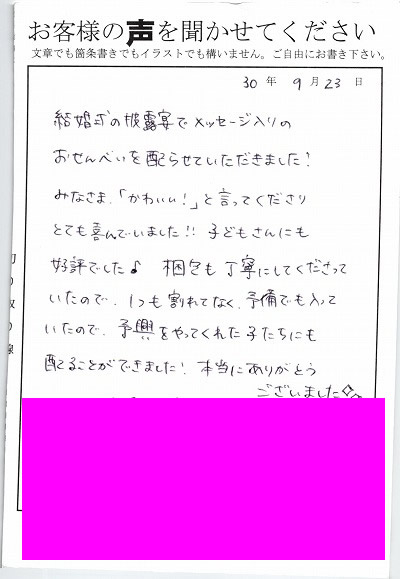 お客様の声を聞かせてください
文章でも箇条書きでもイラストでも構いません。ご自由にお書き下さい。
30 年 9 月 23 日
結婚式の披露宴でメッセージ入りの
おせんべいを配らせていただきました!
みなさま、「かわいい!」と言ってくださり
とても喜んでいました!! 子どもさんにも
好評でした♪ 梱包も丁寧にしてくださって
いたので、1つも割れてなく、予備でも入って
いたので、予興をやってくれた子たちにも
配ることができました! 本当にありがとう
ございました☆